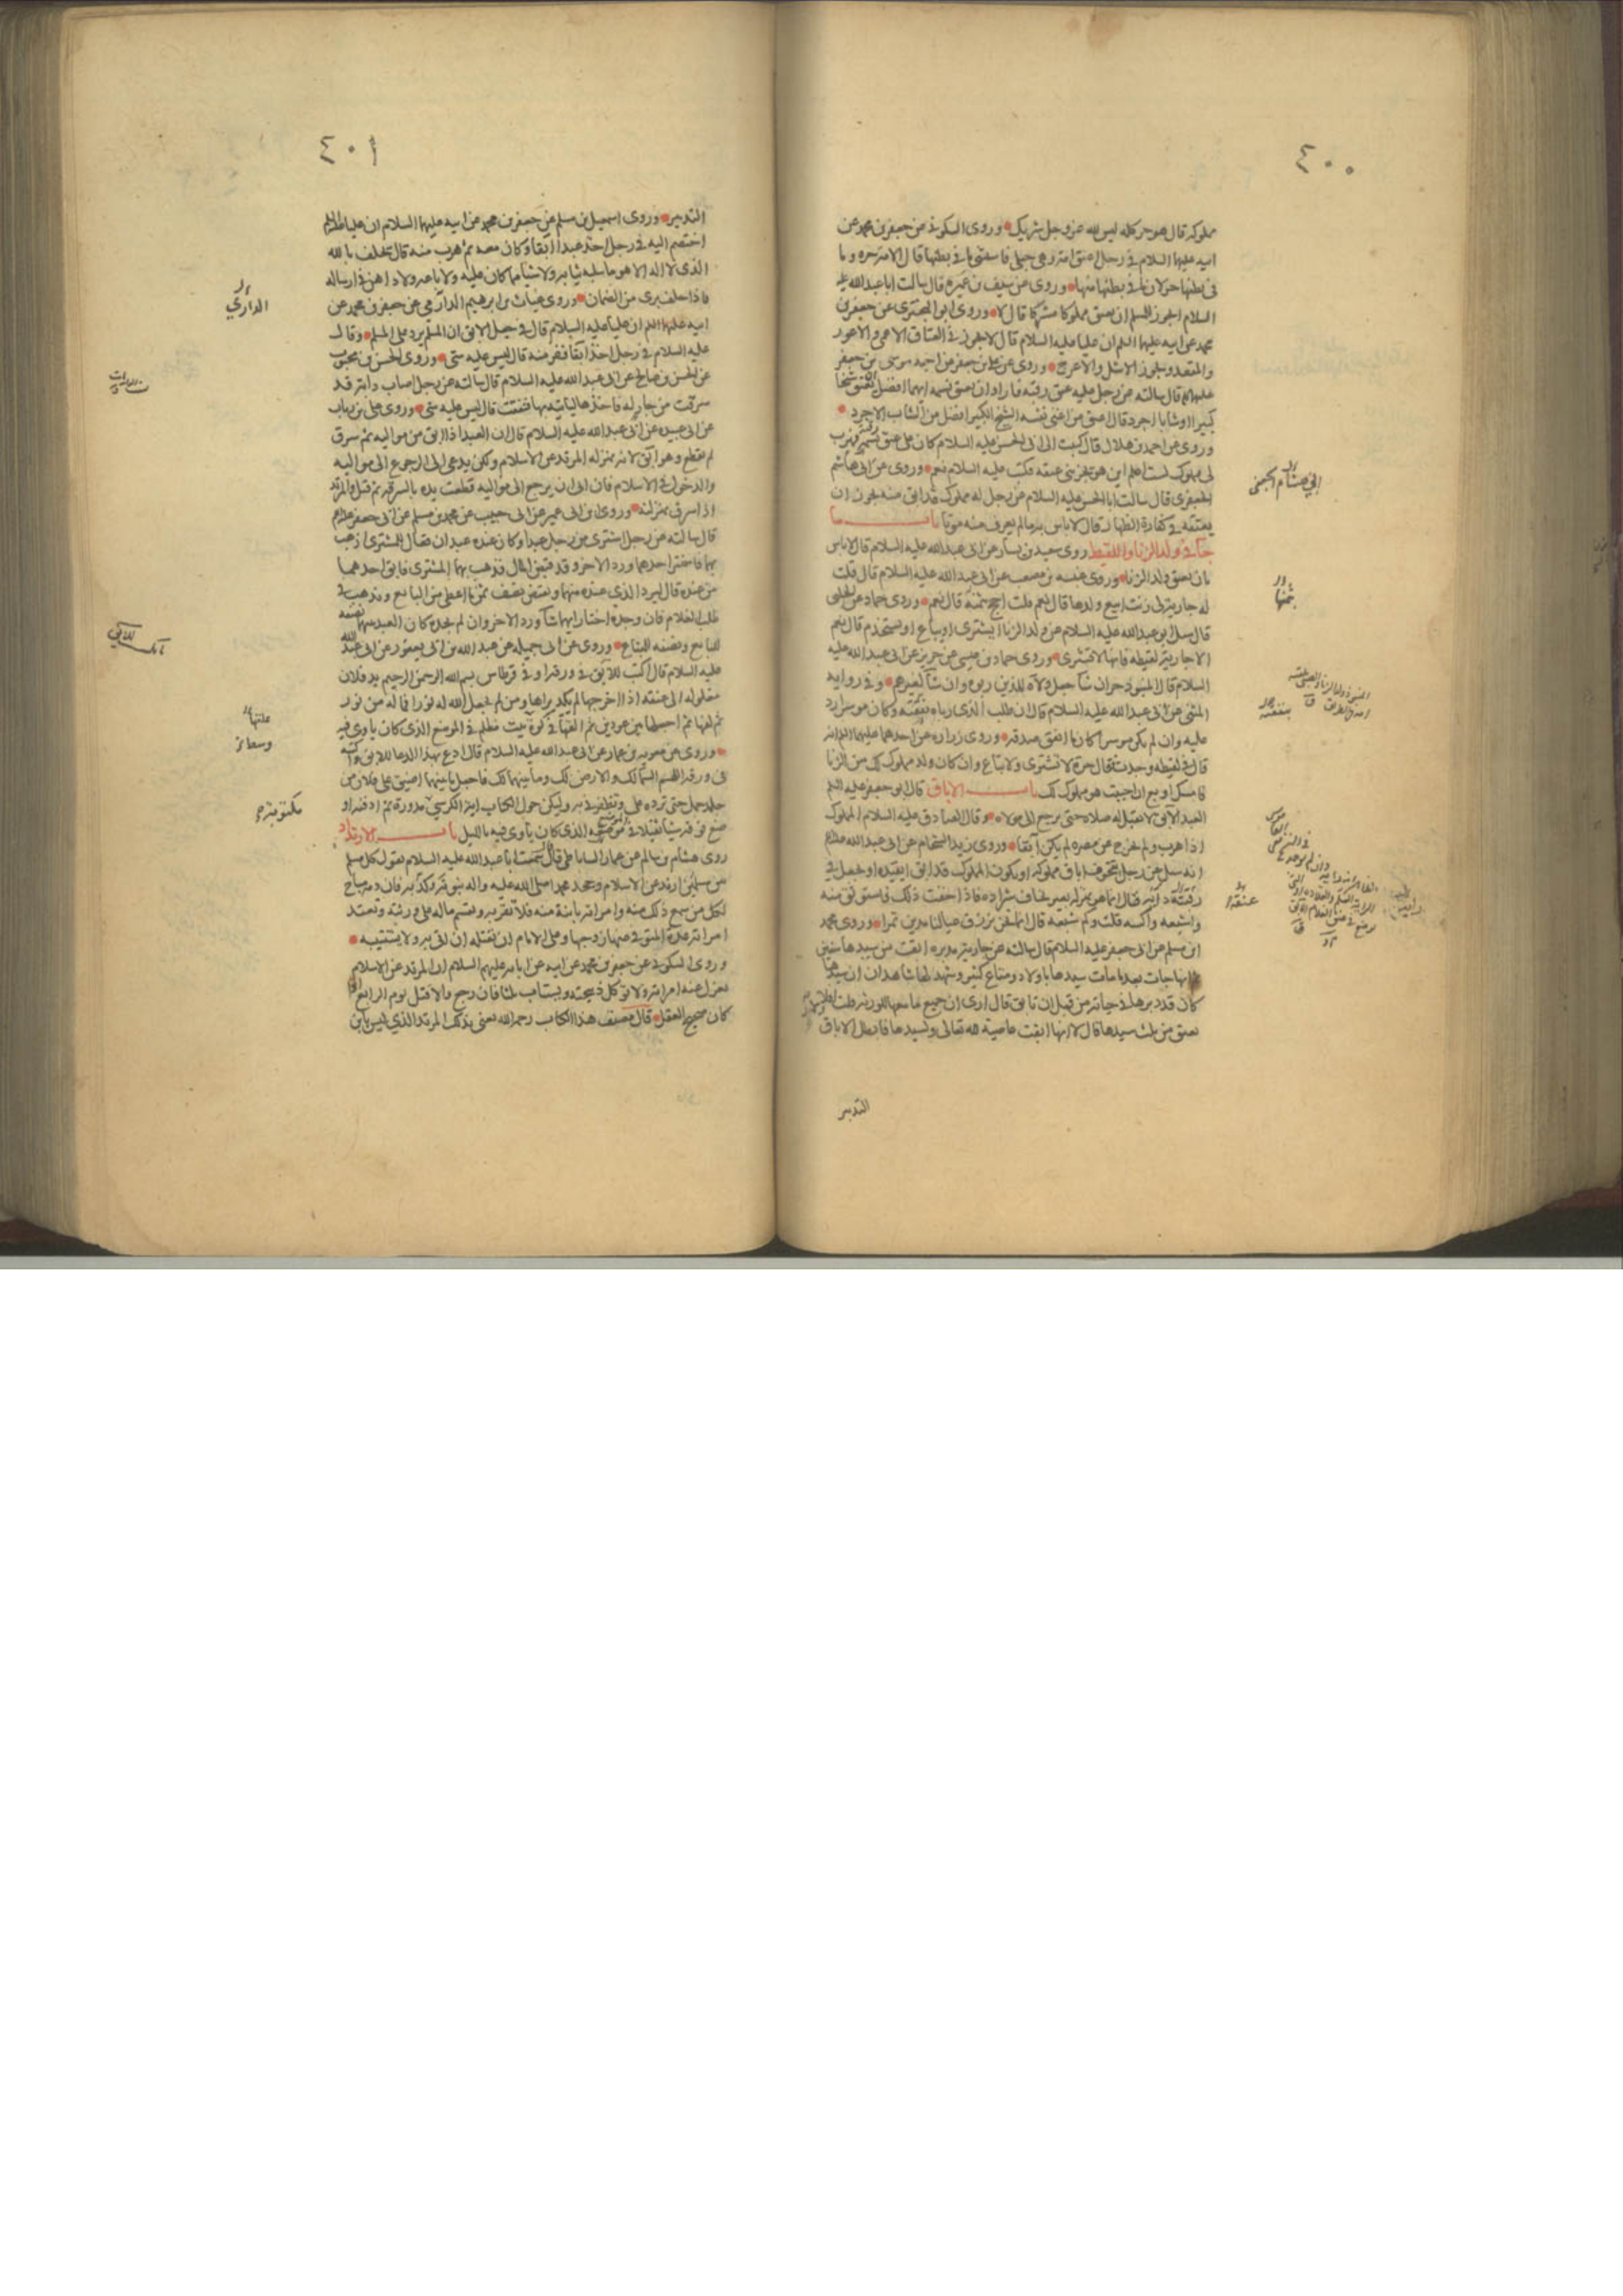 ٤٠٠
مملوكه قال هو حر كله ليس لله عز وجل شريك وروى السكوني عن جعفر بن محمد عن
ابيه عليهما السلام في رجل اعتق امته وهي حبلى فاستثنى ما في بطنها قال الامة حره وما
في بطنها حر لان ما في بطنها منها وروى عن سيف بن عميره قال سالت ابا عبد الله عليه
السلام ايجوز للمسلم ان يعتق مملوكا مشركا قال لا وروى ابو البختري عن جعفر بن
محمد عن ابيه عليهما السلم ان عليا عليه السلام قال لا يجوز في العتاق الاعمى والاعور
والمقعد ويجوز الاشل والاعرج وروى عن علي بن جعفر عن اخيه موسى بن جعفر
عليهم قال سالته عن رجل عليه عتق رقبه فاراد ان يعتق نسمه ايهما افضل يعتق شيخا
كبيرا او شابا اجرد قال اعتق من اغنى نفسه الشيخ الكبير افضل من الشاب الاجرد
وروى عن احمد بن هلال قال كتبت الى ابي الحسن عليه السلام كان علي عتق رقبه فهرب
لي مملوك لست اعلم اين هو يجزيني عتقه فكتب عليه السلام نعم وروى عن ابي هاشم
الجعفري قال سالت ابا الحسن عليه السلام عن رجل له مملوك قد ابق منه يجوز ان
يعتقه في كفارة الظهار قال لا باس به ما لم يعرف منه موتا باب ما
جاء في ولد الزنا واللقيط روى سعيد بن يسار عن ابي عبد الله عليه السلام قال لا باس
بان يعتق ولد الزنا وروى عنبسه بن مصعب عن ابي عبد الله عليه السلام قال قلت
له جارية لي زنت ابيع ولدها قال نعم قلت احج بثمنه قال نعم وروى حماد عن الحلبي
قال سئل ابو عبد الله عليه السلام عن ولد الزنا ايشترى او يباع او يستخدم قال نعم
الا جارية لقيطه فانها لا تشترى وروى حماد بن عيسى عن حريز عن ابي عبد الله عليه
السلام قال المنبوذ حر ان شا جعل ولاه للذين ربوه وان شا لغيرهم وفي رواية
المثنى عن ابي عبد الله عليه السلام قال ان طلب الذي رباه بنفقته وكان موسرا رد
عليه وان لم يكن موسرا كان ما انفق صدقه وروى زراره عن احدهما عليهما السلم انه
قال في لقيطه وجدت فقال حرة لا تشترى ولا تباع وان كان ولد مملوك لك من الزنا
فامسك او بع ان احببت هو مملوك لك باب الاباق قال ابو جعفر عليه السلم
العبد الآبق لا تقبل له صلاه حتى يرجع الى مولاه وقال الصادق عليه السلام المملوك
اذا هرب ولم يخرج من مصره لم يكن آبقا وروى زيد الشحام عن ابي عبد الله عليه السلام
انه سئل عن رجل يتخوف اباق مملوكه او يكون المملوك قد ابق ايقيده او يجعل في
رقبته راية فقال انما هو بمنزلة بعير تخاف شراده فاذا خفت ذلك فاستوثق منه
واشبعه واكسه قلت وكم شبعه قال اما نحن نرزق عيالنا مدين تمرا وروى محمد
ابن مسلم عن ابي جعفر عليه السلام قال سالته عن جارية مدبره ابقت من سيدها سنين
ثم انها جات بعد ما مات سيدها باولاد ومتاع كثير وشهد لها شاهدان ان سيدها
كان قد دبرها في حياته من قبل ان تابق قال ارى ان جميع ما معها للورثه قلت
تعتق من ثلث سيدها قال لا انها ابقت عاصية لله تعالى ولسيدها فابطل الاباق
التدبير
ابي هشام الجعفي
بثمنها
بنفقته
عنقه
٤٠١
التدبير وروى اسمعيل بن مسلم عن جعفر بن محمد عن ابيه عليهما السلام ان عليا عليه السلام
اختصم اليه في رجل اخذ عبدا آبقا وكان معه ثم هرب منه قال يحلف بالله
الذي لا اله الا هو ما سلبه ثيابه ولا شيا مما كان عليه ولا باعه ولا داهن في ارساله
فاذا حلف برى من الضمان وروى غياث بن ابرهيم الدارمي عن جعفر بن محمد عن
ابيه عليهما السلم ان عليا عليه السلام قال في جعل الآبق ان المسلم يرد على المسلم وقال
عليه السلام في رجل اخذ آبقا ففر منه قال ليس عليه شي وروى الحسن بن محبوب
عن الحسن بن صالح عن ابي عبد الله عليه السلام قال سالته عن رجل اصاب دابة قد
سرقت من جار له فاخذها لياتيه بها فنفقت قال ليس عليه شي وروى علي بن رياب
عن ابي عبيده عن ابي عبد الله عليه السلام قال ان العبد اذا ابق من مواليه ثم سرق
لم يقطع وهو آبق لانه بمنزله المرتد عن الاسلام ولكن يدعى الى الرجوع الى مواليه
والدخول في الاسلام فان ابى ان يرجع الى مواليه قطعت يده بالسرقه ثم قتل والمرتد
اذا سرق بمنزلته وروى ابن ابي عمير عن ابي حبيب عن محمد بن مسلم عن ابي جعفر عليه السلام
قال سالته عن رجل اشترى من رجل عبدا وكان عنده عبدان فقال للمشترى اذهب
بهما فاختر احدهما ورد الاخر وقد قبض المال فذهب بهما المشترى فابق احدهما
من عنده قال ليرد الذي عنده منهما ويقبض نصف ثمن ما اعطى من البايع ويذهب في
طلب الغلام فان وجده اختار ايهما شا ورد الاخر وان لم يجده كان العبد بينهما نصفه
للبايع ونصفه للمبتاع وروى عن ابي جميله عن عبد الله بن ابي يعفور عن ابي عبد الله
عليه السلام قال اكتب للآبق في ورقه او في قرطاس بسم الله الرحمن الرحيم يد فلان
مغلوله الى عنقه اذا اخرجها لم يكد يراها ومن لم يجعل الله له نورا فما له من نور
ثم لفها ثم اجعلها بين عودين ثم القها في كوة بيت مظلم في الموضع الذي كان ياوي فيه
وروى عن معويه بن عمار عن ابي عبد الله عليه السلام قال ادع بهذا الدعا للآبق واكتبه
في ورقه اللهم السما لك والارض لك وما بينهما لك فاجعل ما بينهما اضيق على فلان من
جلد جمل حتى ترده علي وتظفرني به وليكن حول الكتاب اية الكرسي مدورة ثم ادفنه او
ضع فوقه شيئا ثقيلا في الموضع الذي كان ياوي فيه بالليل باب الارتداد
روى هشام بن سالم عن عمار الساباطي قال سمعت ابا عبد الله عليه السلام يقول كل مسلم
من مسلمين ارتد عن الاسلام وجحد محمدا صلى الله عليه واله نبوته وكذبه فان دمه مباح
لكل من سمع ذلك منه وامراته باينة منه فلا تقربه ويقسم ماله على ورثته وتعتد
امراته عدة المتوفى عنها زوجها وعلى الامام ان يقتله ان اتي به ولا يستتيبه
وروى السكوني عن جعفر بن محمد عن ابيه عن ابايه عليهم السلام ان المرتد عن الاسلام
تعزل عنه امراته ولا توكل ذبيحته ويستتاب ثلثا فان رجع والا قتل يوم الرابع اذا
كان صحيح العقل قال مصنف هذا الكتاب رحمه الله يعني بذلك المرتد الذي ليس بابن
الداري
للآبق